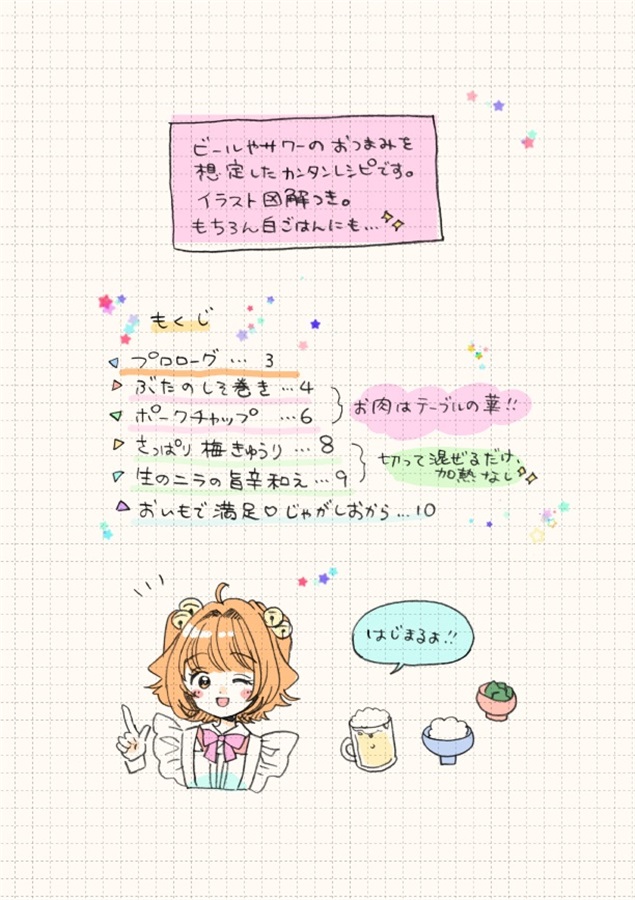 ビールやサワーのおつまみを
想定したカンタンレシピです。
イラスト図解つき。
もちろん白ごはんにも…
もくじ
プロローグ… 3
ぶたのしそ巻き…4
ポークチャップ …6
お肉はテーブルの華!!
さっぱり梅きゅうり…8
生のニラの旨辛和え…9
切って混ぜるだけ、
加熱なし
おいもで満足♡じゃがしおから…10
はじまるよ!!